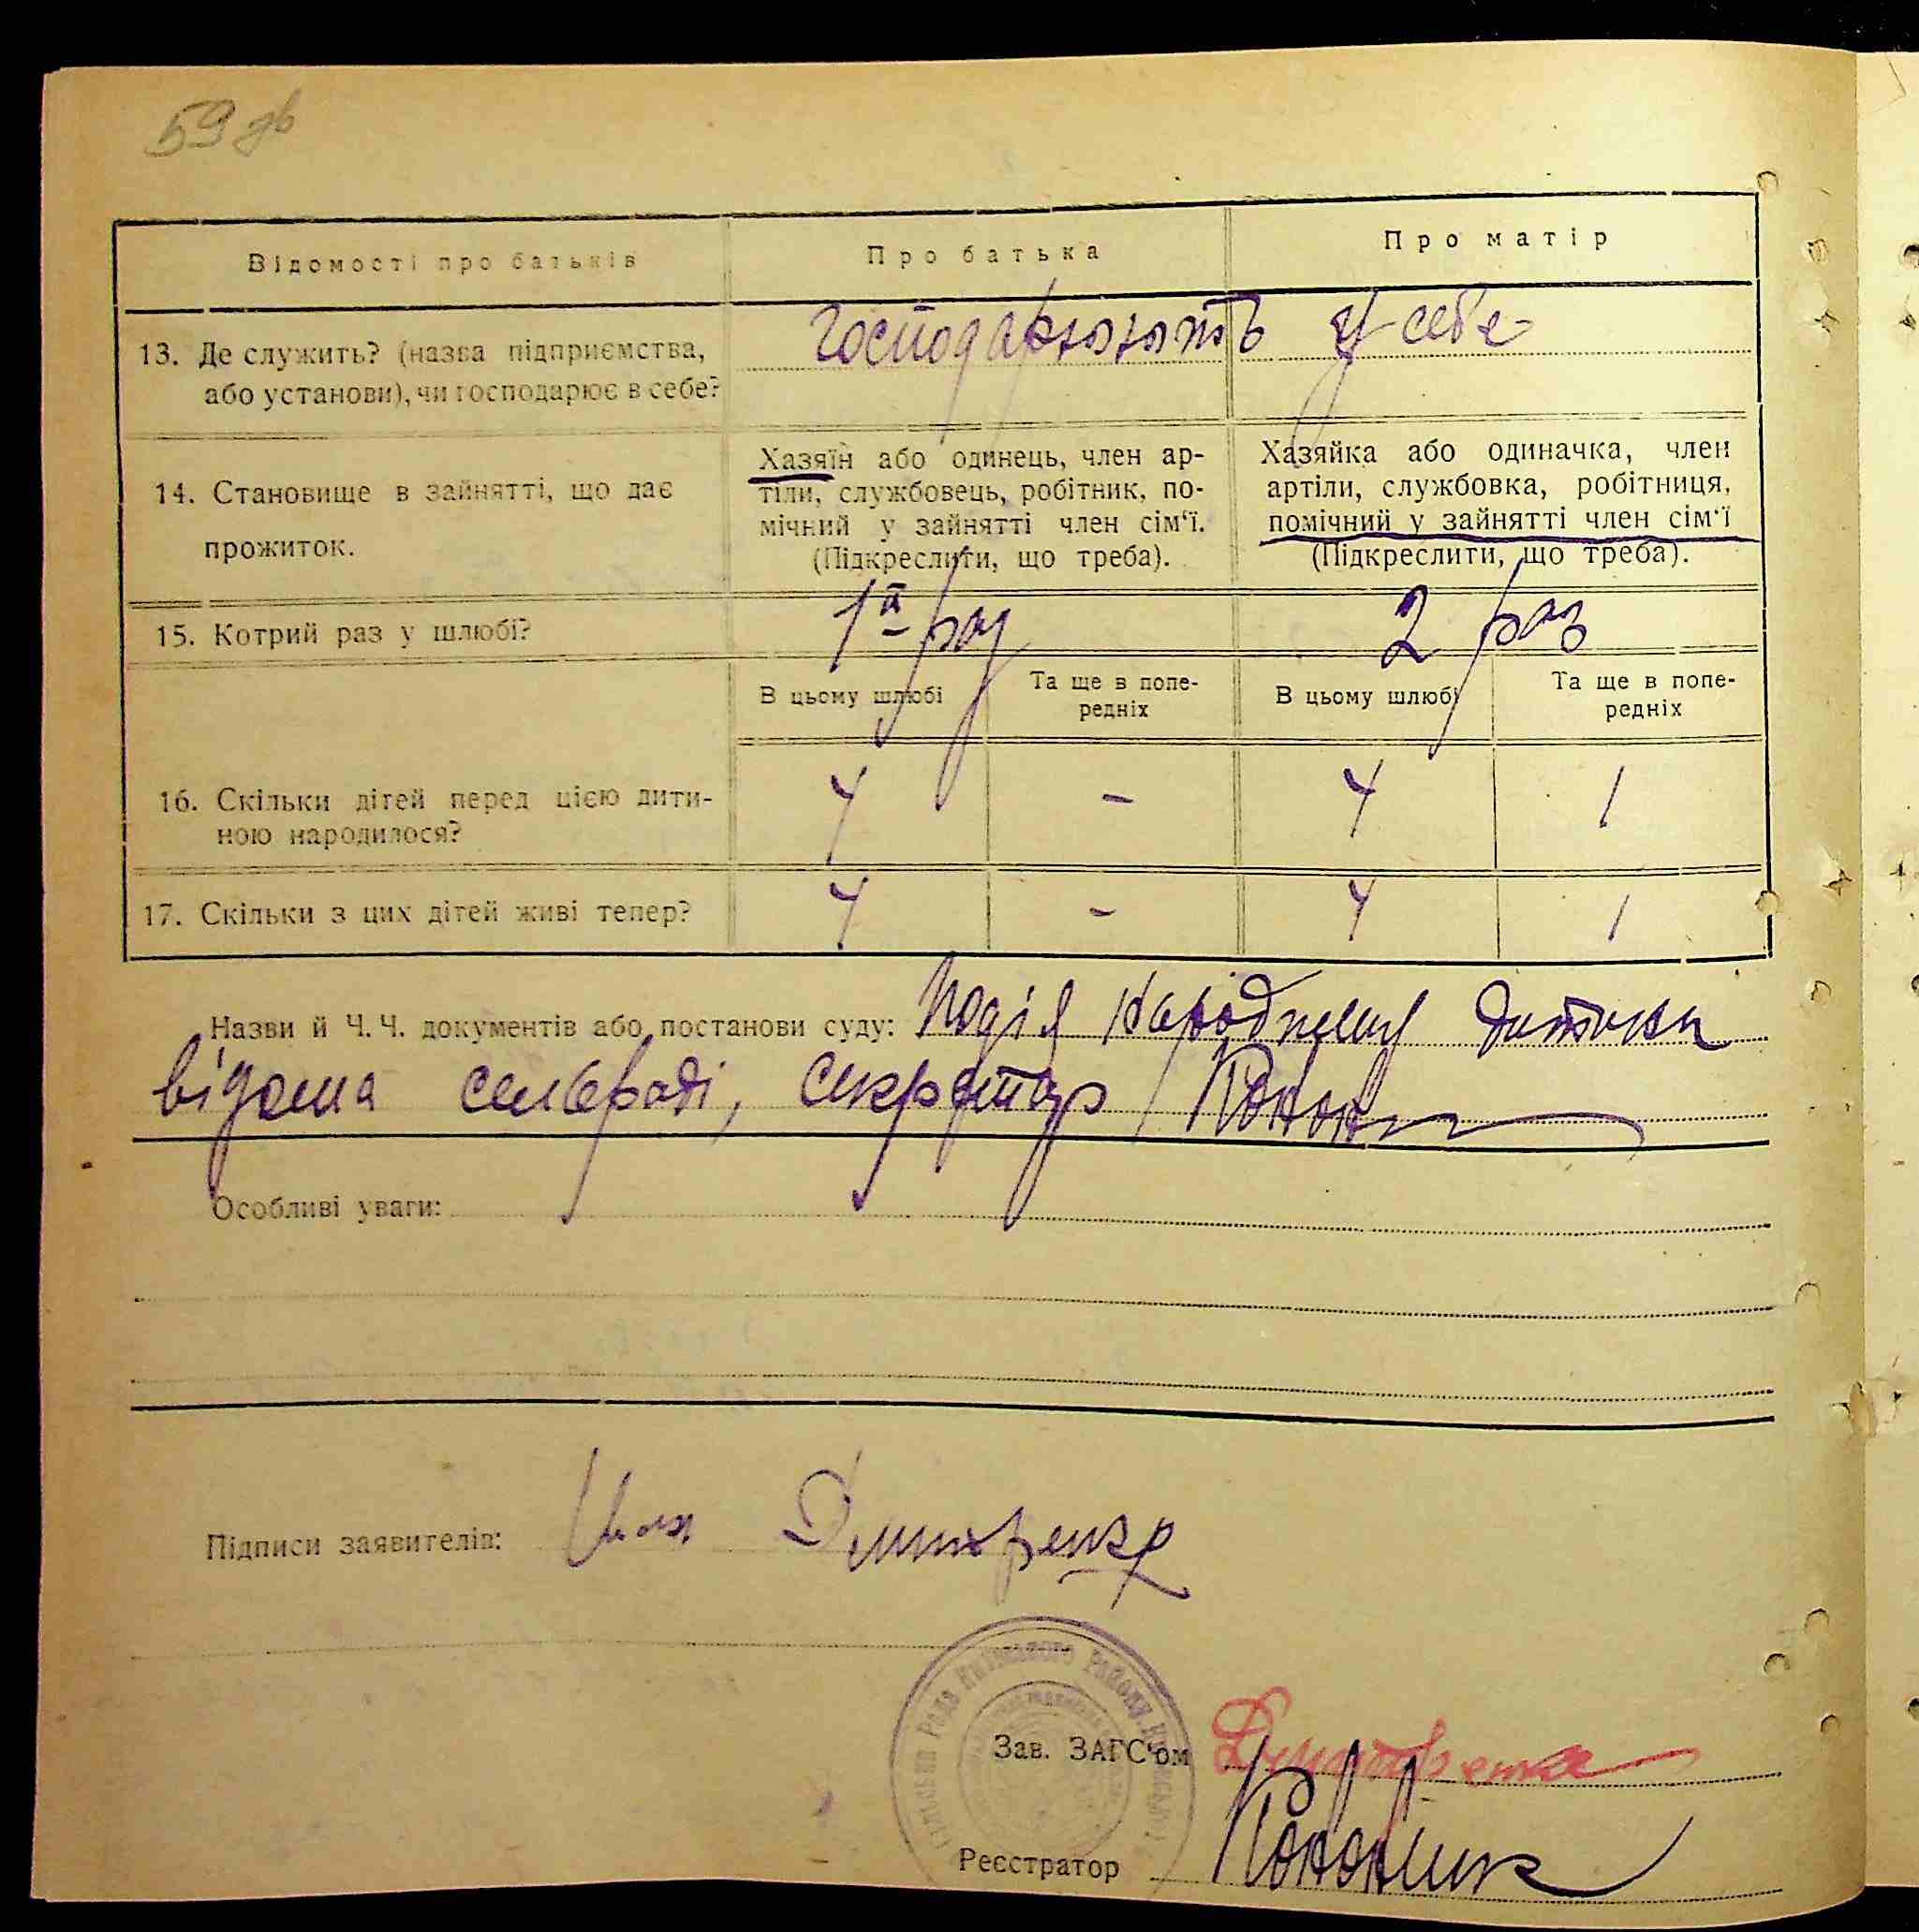 59 зв
Відомості про батьків
Про батька
Про матір
13. Де служить? (назва підприємства,
або установи), чи господарює в себе?
господарюють у себе
14. Становище в зайнятті, що дає
прожиток.
Хазяїн або одинець, член ар-
тіли, службовець, робітник, по-
мічний у зайнятті член сім‘ї.
(Підкреслити, що треба).
Хазяйка або одиначка, член
артіли, службовка, робітниця,
помічний у зайнятті член сім‘ї
(Підкреслити, що треба).
15. Котрий раз у шлюбі?
1й раз
2 раз
В цьому шлюбі
Та ще в попе-
редніх
В цьому шлюбі
Та ще в попе-
редніх
16. Скільки дітей перед цією дити-
ною народилося?
4 - 4 1
17. Скільки з цих дітей живі тепер?
4 - 4 1
Назви й Ч. Ч. документів або постанови суду: Подія народження дитини
відома сельраді, секретар
Особливі уваги:
Підписи заявителів: Дмитренко
Ради району
Зав. ЗАГС‘ом
Реєстратор